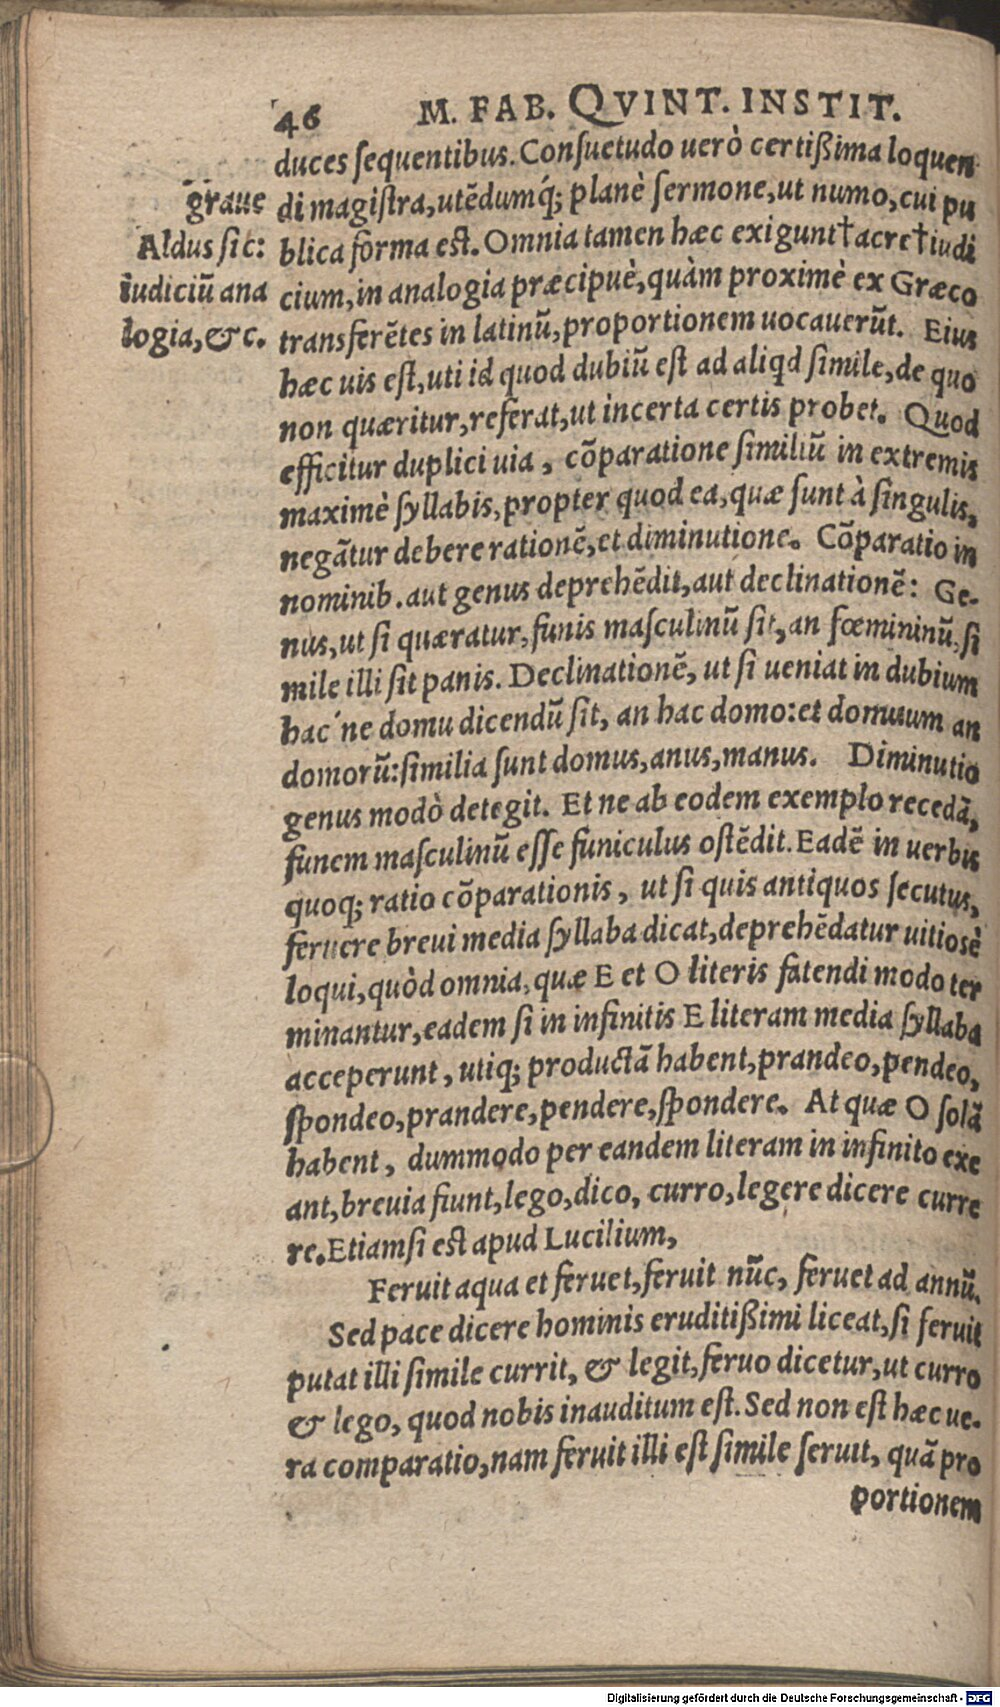 46 M. FAB. QVINT. INSTIT.
duces sequentibus. Consuetudo uerò certißima loquen
di magistra, utẽdumq́; planè sermone, ut numo, cui pu
blica forma est. Omnia tamen hæc exigunt†acre†iudi
cium, in analogia præcipuè, quàm proximè ex Græco
transferẽtes in latinũ, proportionem uocauerũt. Eius
hæc uis est, uti id quod dubiũ est ad aliqd simile, de quo
non quæritur, referat, ut incerta certis probet. Quod
efficitur duplici uia, cõparatione similiũ in extremis
maximè syllabis, propter quod ea, quæ sunt à singulis,
negãtur debere rationẽ, et diminutione. Cõparatio in
nominib. aut genus deprehẽdit, aut declinationẽ: Ge-
nus, ut si quæratur, funis masculinũ sit, an fœmininũ, si
mile illi sit panis. Declinationẽ, ut si ueniat in dubium
hac´ne domu dicendũ sit, an hac domo: et domuum an
domorũ: similia sunt domus, anus, manus. Diminutio
genus modò detegit. Et ne ab eodem exemplo recedã,
funem masculinũ esse funiculus ostẽdit. Eadẽ in uerbis
quoq; ratio cõparationis, ut si quis antiquos secutus,
feruere breui media syllaba dicat, deprehẽdatur uitiosè
loqui, quòd omnia, quæ E et O literis fatendi modo ter
minantur, eadem si in infinitis E literam media syllaba
acceperunt, utiq; productã habent, prandeo, pendeo,
spondeo, prandere, pendere, spondere. At quæ O solã
habent, dummodo per eandem literam in infinito exe
ant, breuia fiunt, lego, dico, curro, legere dicere curre
re. Etiamsi est apud Lucilium,
Feruit aqua et feruet, feruit nũc, feruet ad annũ.
Sed pace dicere hominis eruditißimi liceat, si feruit
putat illi simile currit, & legit, feruo dicetur, ut curro
& lego, quod nobis inauditum est. Sed non est hæc ue-
ra comparatio, nam feruit illi est simile seruit, quã pro
portionem
graue
Aldus sic:
iudiciũ ana
logia, &c.
Digitalisierung gefördert durch die Deutsche Forschungsgemeinschaft - DFG